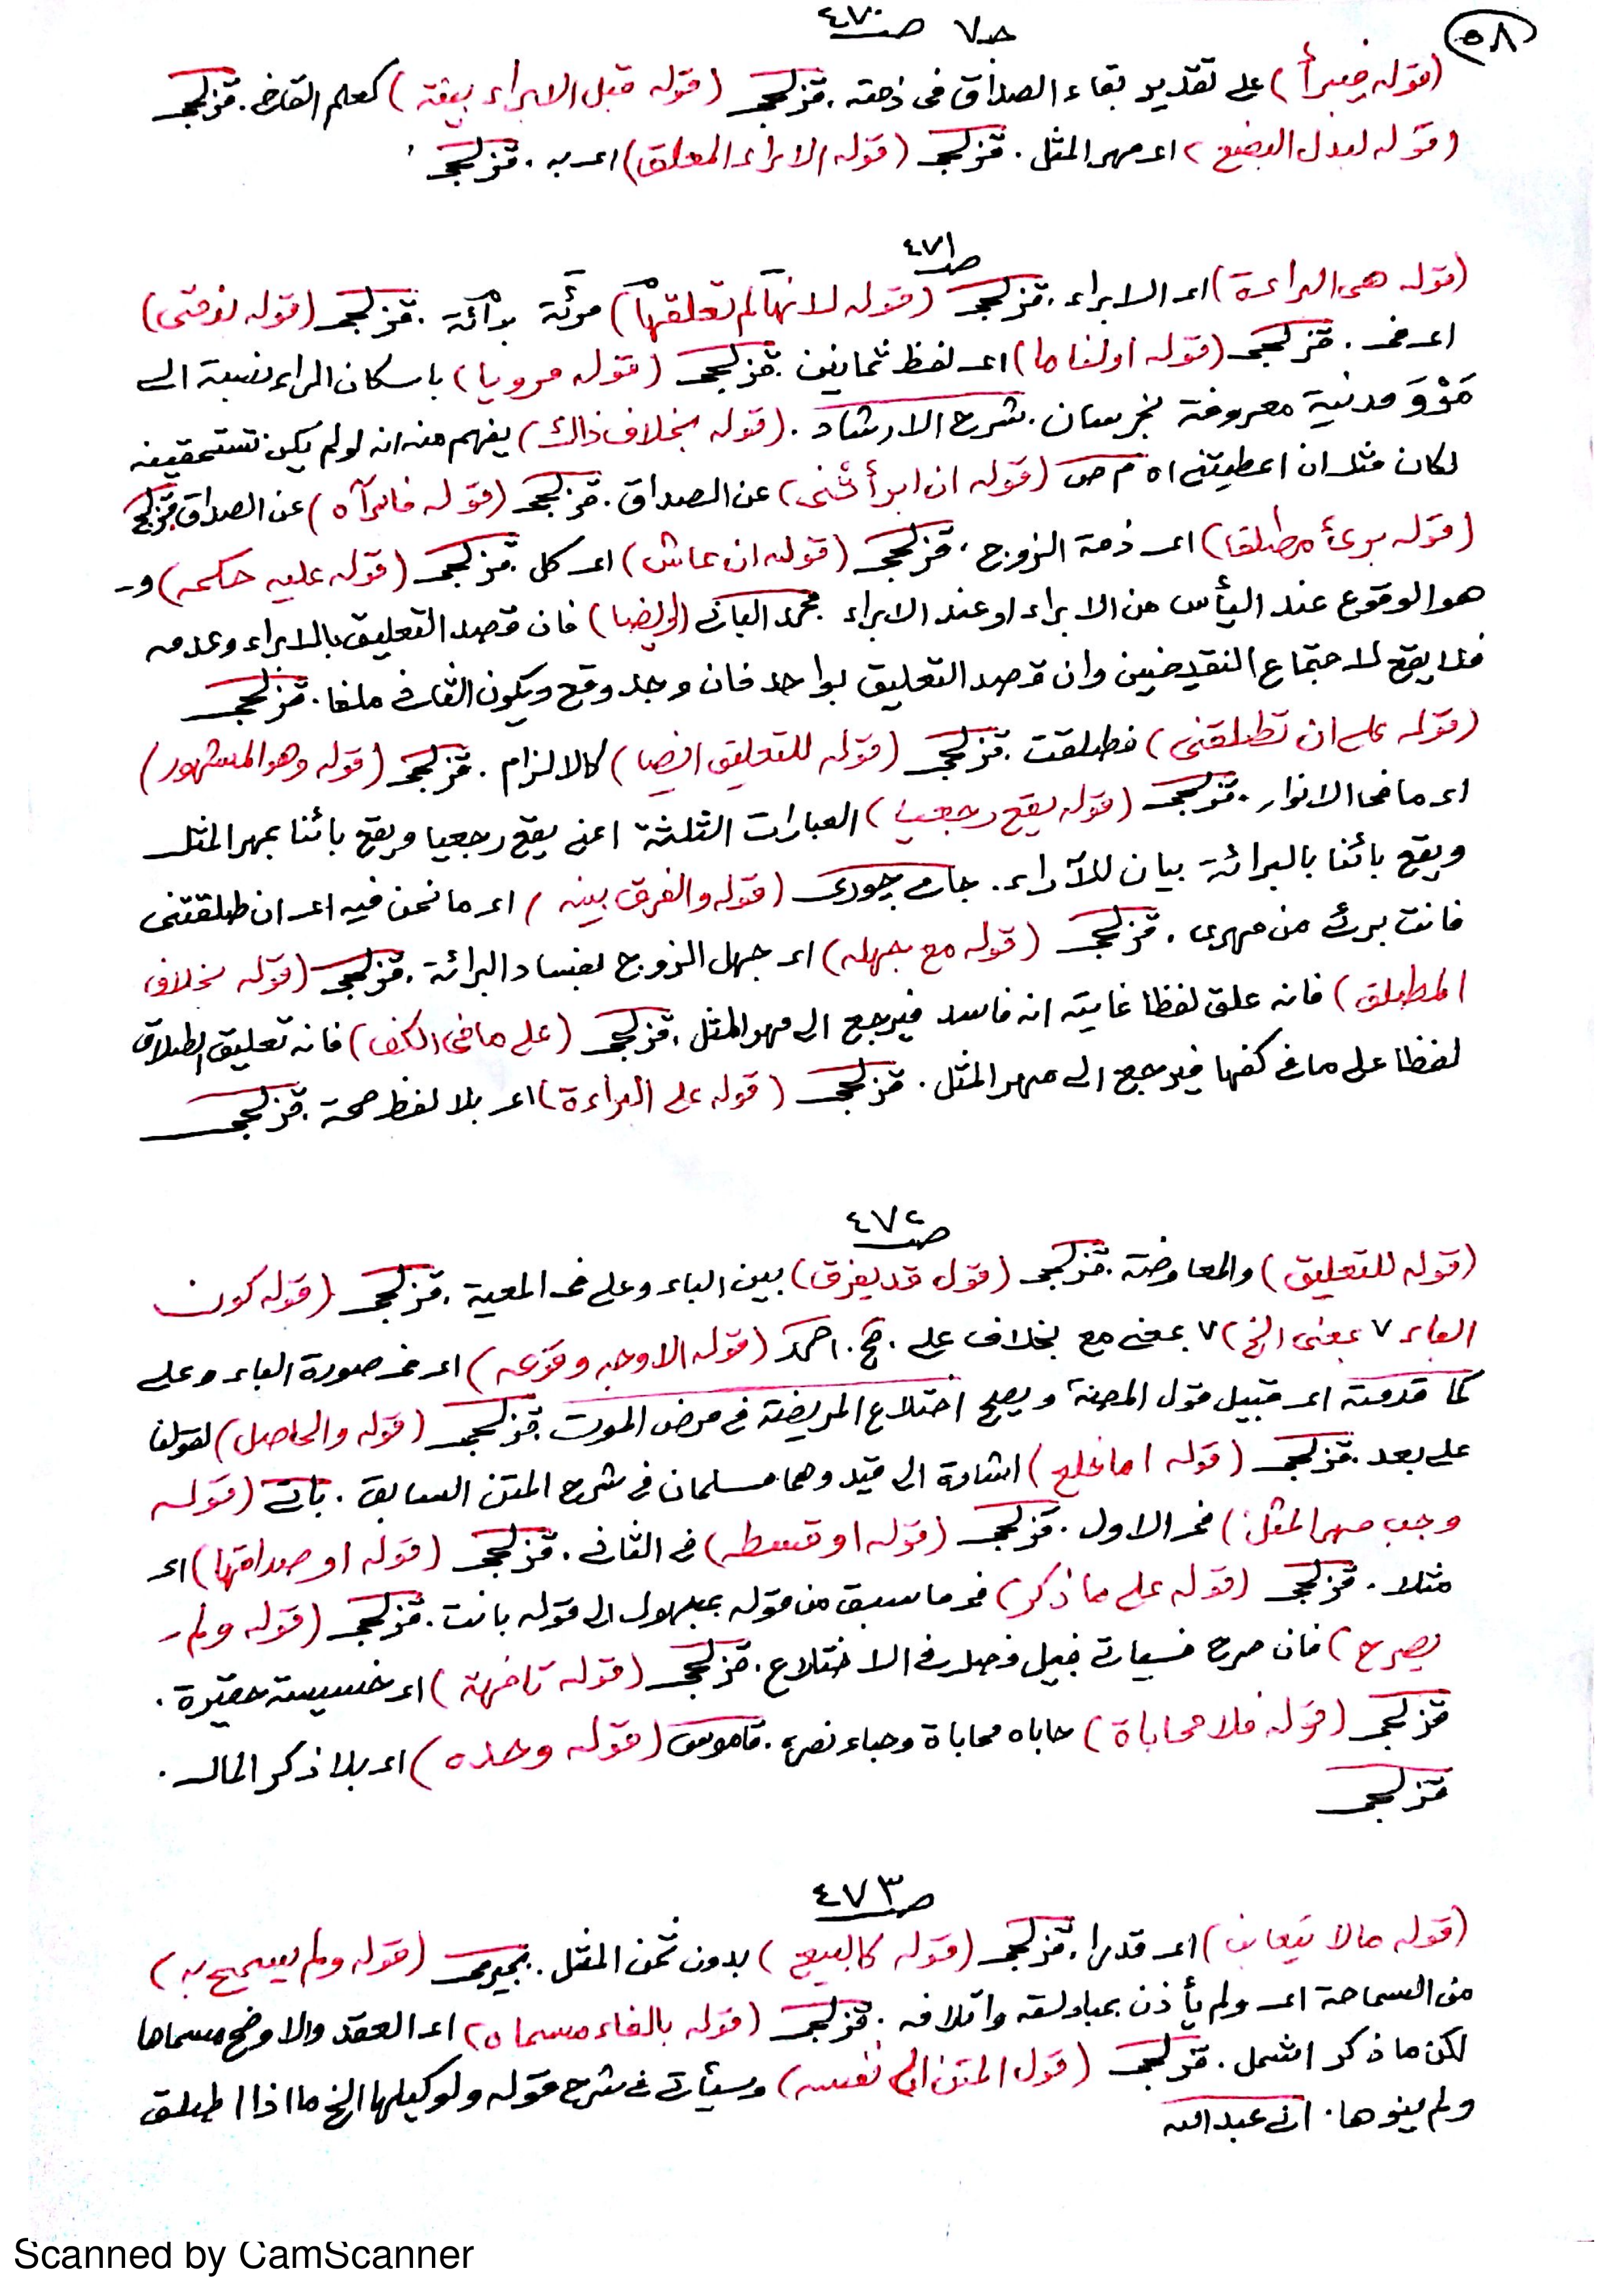 ٥٨
حـ٧ صـ٤٧٠
(قوله فيبرأ) على تقدير بقاء الصداق فى ذمته . قزلجى (قوله قبل الابراء بيقة) كعلم القاضى . قزلجى
(قوله لبدل البضع) اى مهر المثل . قزلجى (قوله الابراء المعلق) اى به . قزلجى
صـ٤٧١
(قوله هى البراءة) اى الابراء . قزلجى (قوله لانها لم تعلقها) قزلجى (قوله
اى فى . قزلجى (قوله اولنا ما) اى لفظ ثمانين . قزلجى (قوله مرويا) باسكان الراء نسبة الى
مَرْوَ مدنية معروفة بخرسان . شرح الارشاد . (قوله بخلاف ذالك) يفهم منه انه لو لم يكن تستحقينه
لكان مثل ان اعطيتنى اه م ص (قوله ان ابرأتنى) عن الصداق . قزلجى (قوله فابرآه) عن الصداق قزلجى
(قوله برئ مطلقا) اى ذمة الزوج . قزلجى (قوله ان عاش) اى كل . قزلجى (قوله عليه حكمه) و-
هو الوقوع عند اليأس من الابراء او عند الابراء محمد البانى فان قصد التعليق بالابراء وعدمه
فلا يقع لاجتماع النقيضين وان قصد التعليق بواحد فان وجد وقع ويكون الثانى ملغا . قزلجى
(قوله على ان تطلقنى) فطلقت . قزلجى (قوله للتعليق ايضا) كالالزام . قزلجى (قوله وهو المشهور)
اى ما فى الانوار . قزلجى (قوله يقع رجعيا) العبارات الثلثة اعنى يقع رجعيا ويقع بائنا بمهر المثل
ويقع بائنا بالبرائة بيان للآراء . جامى چورى (قوله والفرق بينه) اى ما نحن فيه اى ان طلقتنى
فانت برئ من مهرى . قزلجى (قوله مع جهله) اى جهل الزوج بفساد البرائة . قزلجى (قوله بخلاف
المطلق) فانه علق لفظا غايته انه فاسد فيرجع الى مهر المثل . قزلجى (على ما فى الكف) فانه تعليق الطلاق
لفظا على ما فى كفها فيرجع الى مهر المثل . قزلجى (قوله على البراءة) اى بلا لفظ صحة . قزلجى
صـ٤٧٢
(قوله للتعليق) والمعاوضة . قزلجى (قول قد يفرق) بين الباء وعلى فى المعية . قزلجى (قوله كون
الباء ٧ بمعنى الخ) ٧ بمعنى مع بخلاف على . احمد (قوله الاوجه وقوعه) اى فى صورة الباء وعلى
كما قدمته اى قبيل قول المصنف ويصح اختلاع المريضة فى مرض الموت . قزلجى (قوله والحاصل) لقولنا
على بعد . قزلجى (قوله اما خلع) اشارة الى قيد وهما مسلمان فى شرح المتن السابق . بانى (قوله
وجب مهر المثل) فى الاول . قزلجى (قوله او قسطه) فى الثانى . قزلجى (قوله او صداقها) اى
مثلا . قزلجى (قوله على ما ذكر) فى ما سبق من قوله بمجهول الى قوله بانت . قزلجى (قوله ولم -
يصرح) فان صرح فسيأتى قبيل فصل فى الاختلاع . قزلجى (قوله تافهة) اى خسيسة حقيرة .
قزلجى (قوله فلا محاباة) حاباه محاباة وحباء نصره . قاموس (قوله وحده) اى بلا ذكر المال .
قزلجى
صـ٤٧٣
(قوله مالا اى قدرا . قزلجى (قوله كالبيع) بدون ثمن المثل . بجيرمى (قوله ولم يسمح به)
من السماحة اى ولم يأذن بمبادلته واتلافه . قزلجى (قوله بالغاء مسماه) اى العقد والاوضح مسماها
لكن ما ذكر اشمل . قزلجى (قول المتن الى نفسه) وسيأتى فى شرح قوله ولوكيلها الخ ما اذا اطلق
ولم ينوها . ابى عبد الله
Scanned by CamScanner